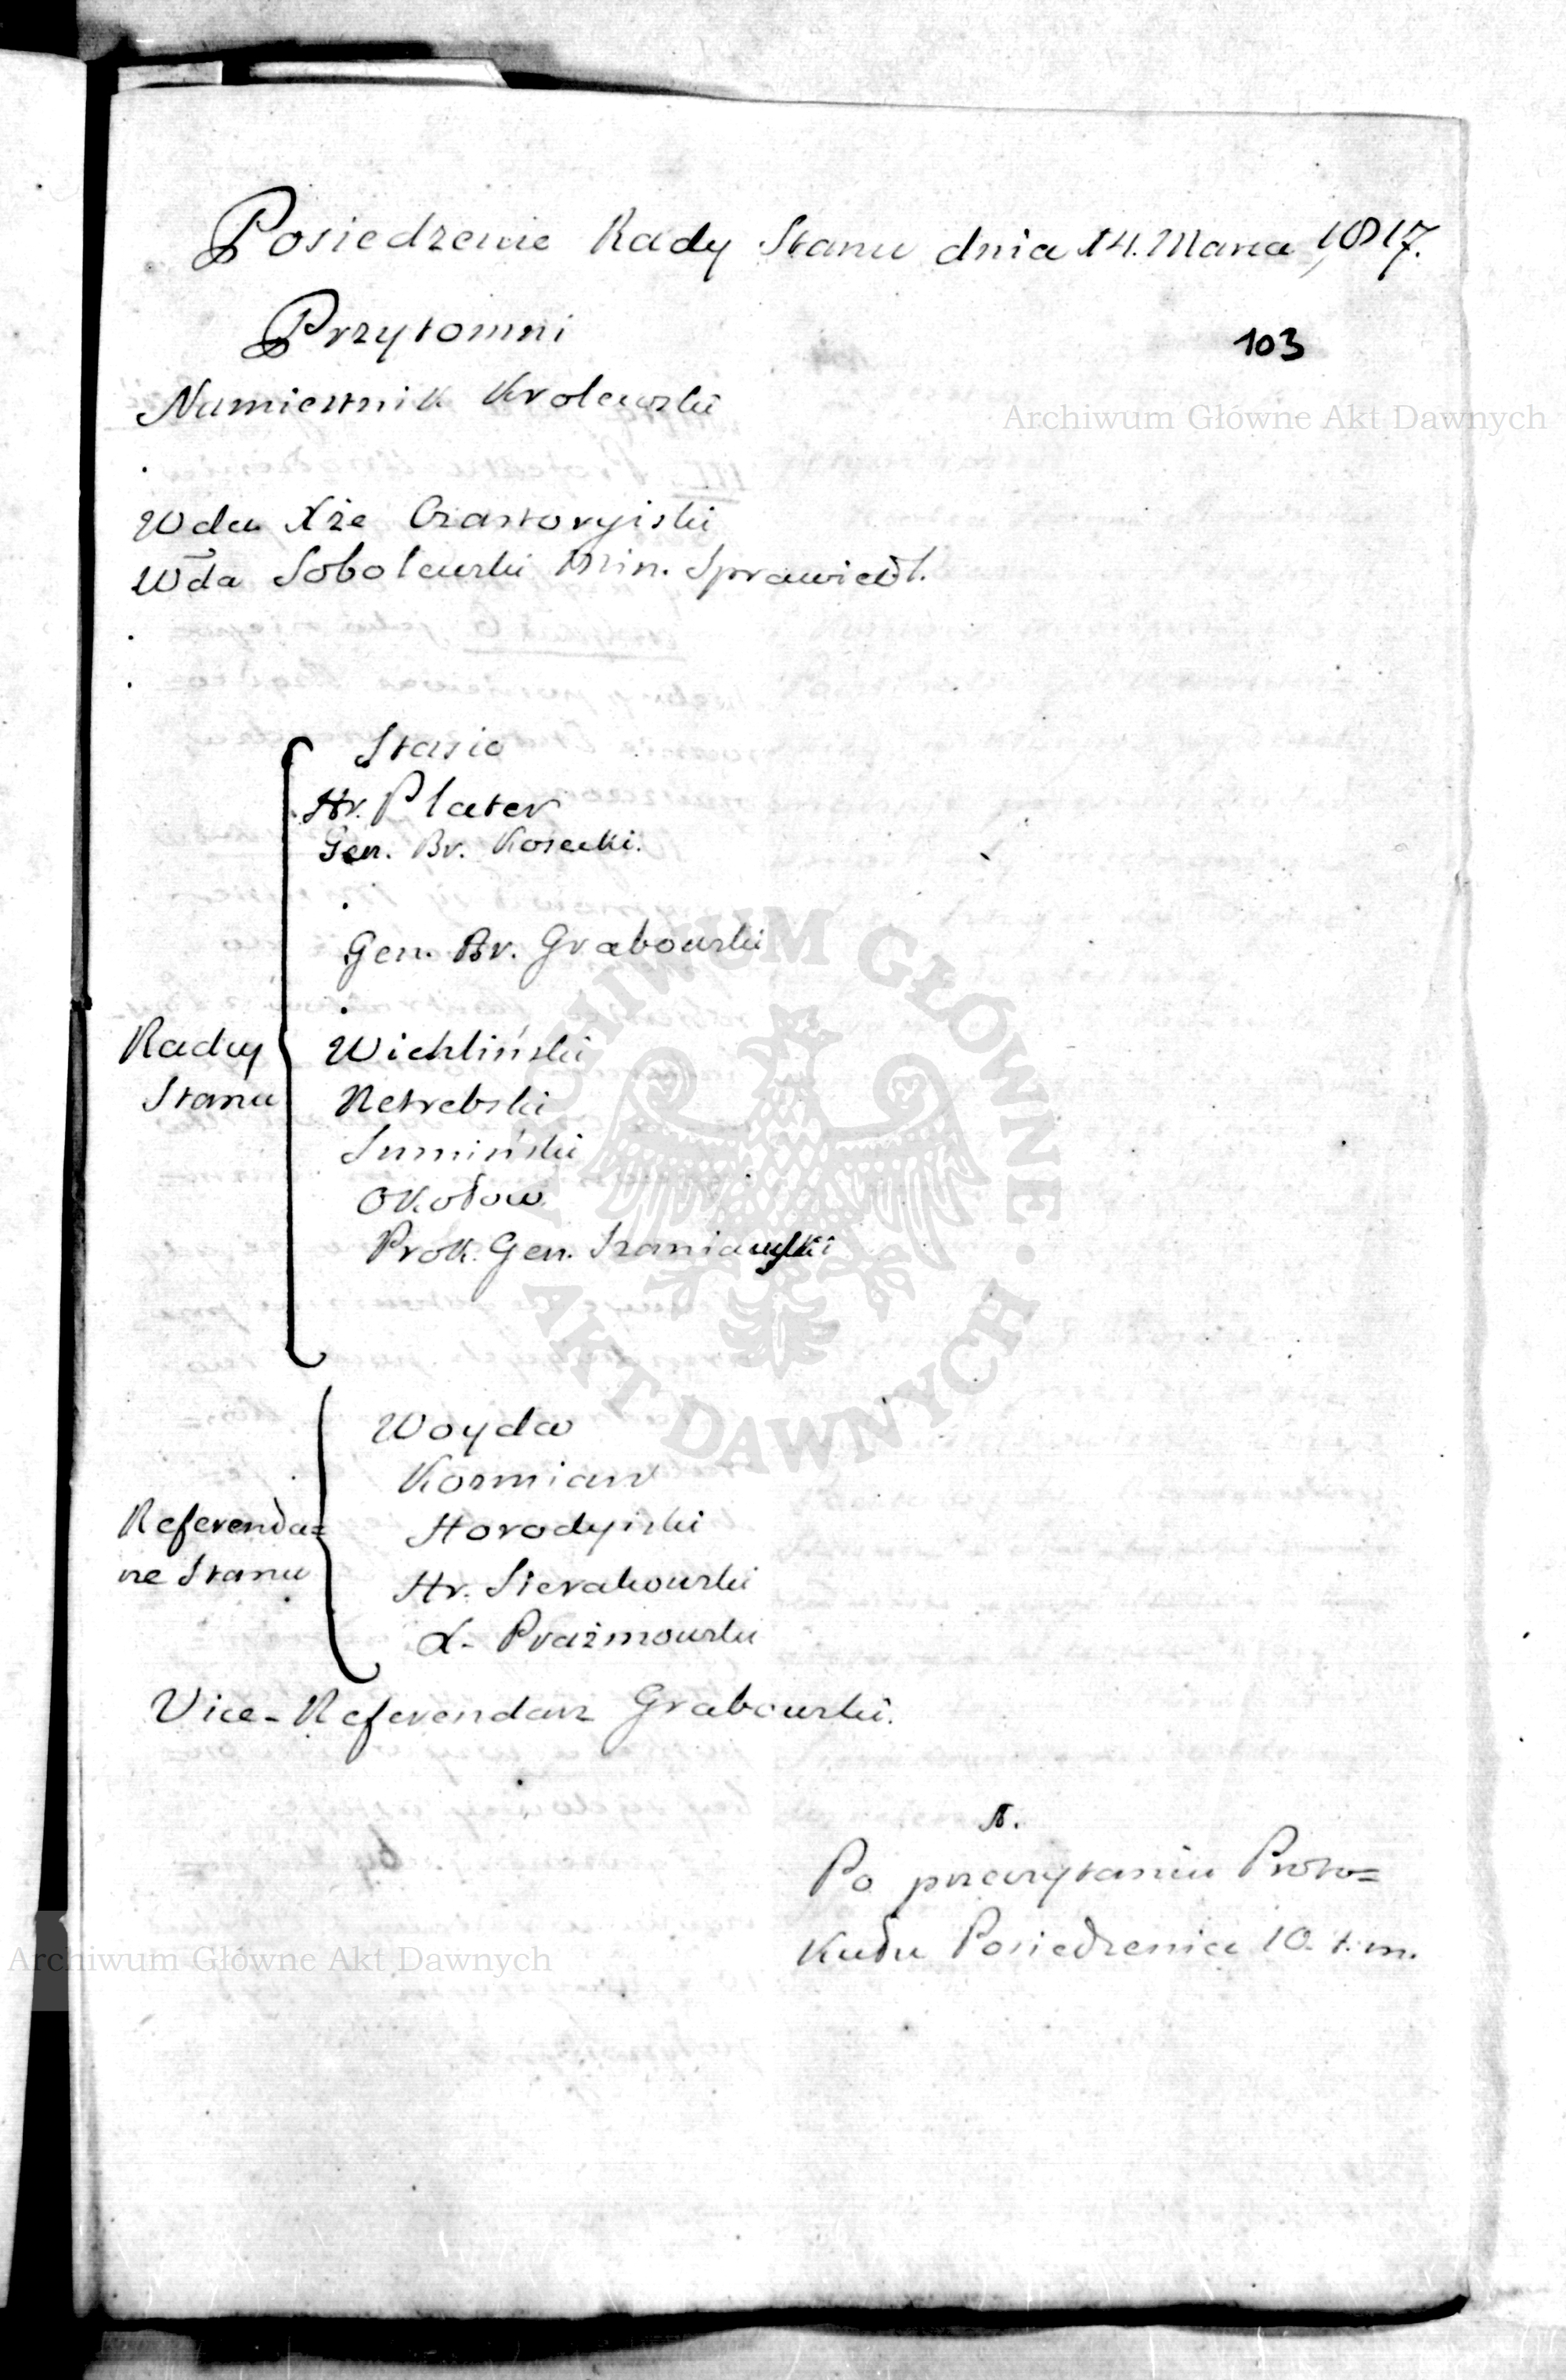 Posiedzenie Rady Stanu dnia 14. Marca 1817.
Przytomni
103
Namiestnik Krolewski
Archiwum Główne Akt Dawnych
.
Wda Xże Czartoryiski
Wda Sobolewski Min. Sprawiedl.
.
.
Stasic
Hr. Plater
Gen. Br. Kosecki.
.
Gen. Br. Grabowski
.
Radcy
Stanu
Wichliński
Netrebski
Sumiński
Okołow
Prok. Gen. Szaniawski
ARCHIWUM GŁÓWNE · AKT DAWNYCH ·
Woyda
Kozmian
Referenda=
rze Stanu
Horodyiski
Hr. Sierakowski
X. Prażmowski
Vice-Referendarz Grabowski.
Po przeczytaniu Proto=
kułu Posiedzenia 10. t. m.
Archiwum Główne Akt Dawnych